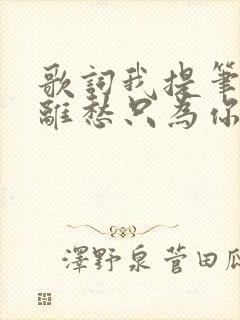 歌詞我提筆
離愁只為你
澤野泉菅田瓜